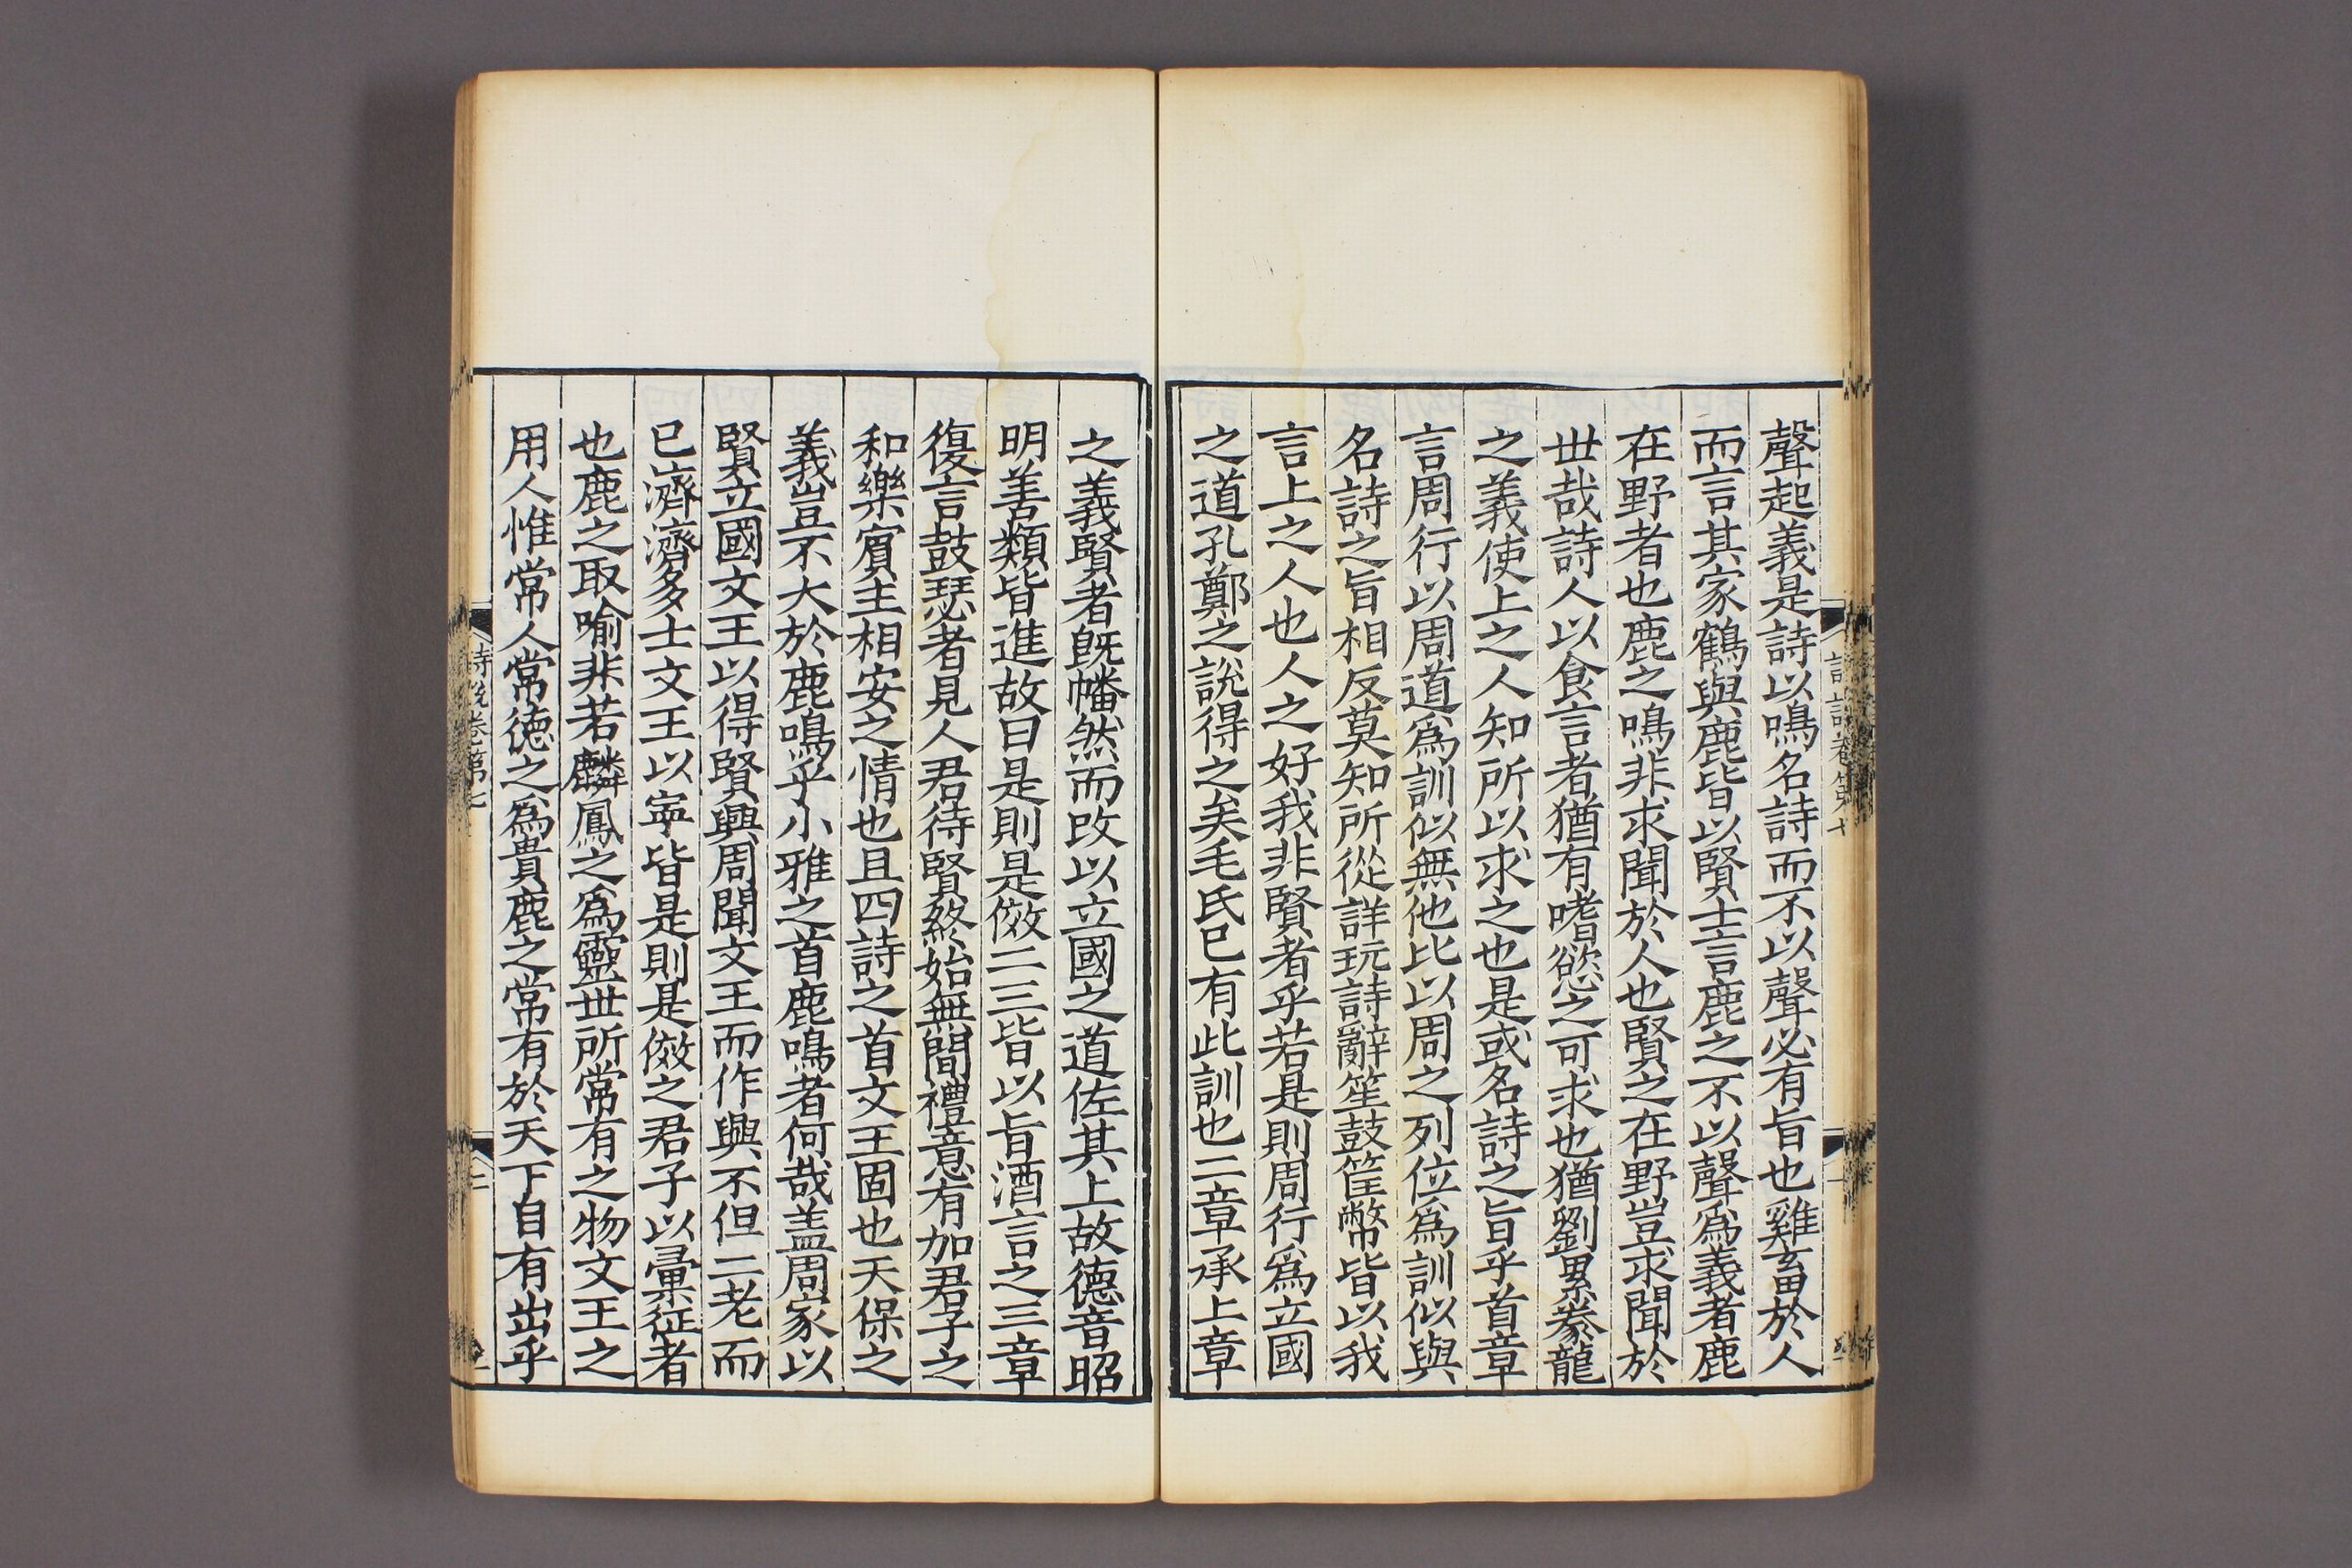 聲起義是詩以鳴名詩而不以聲必有旨也雞畜於人
而言其家鶴與鹿皆以賢士言鹿之不以聲爲義者鹿
在野者也鹿之鳴非求聞於人也賢之在野豈求聞於
世哉詩人以食言者猶有嗜慾之可求也猶劉累豢龍
之義使上之人知所以求之也是或名詩之旨乎首章
言周行以周道爲訓似無他比以周之列位爲訓似與
名詩之旨相反莫知所從詳玩詩辭笙鼓筐幣皆以我
言上之人也人之好我非賢者乎若是則周行爲立國
之道孔鄭之說得之矣毛氏已有此訓也二章承上章
之義賢者旣幡然而改以立國之道佐其上故德音昭
明善類皆進故曰是則是傚二三皆以旨酒言之三章
復言鼓瑟者見人君待賢終始無間禮意有加君子之
和樂賓主相安之情也且四詩之首文王固也天保之
義豈不大於鹿鳴乎小雅之首鹿鳴者何哉盖周家以
賢立國文王以得賢興周聞文王而作興不但二老而
已濟濟多士文王以寧皆是則是傚之君子以彙征者
也鹿之取喻非若麟鳳之爲靈世所常有之物文王之
用人惟常人常德之爲貴鹿之常有於天下自有出乎
詩說卷第七
二